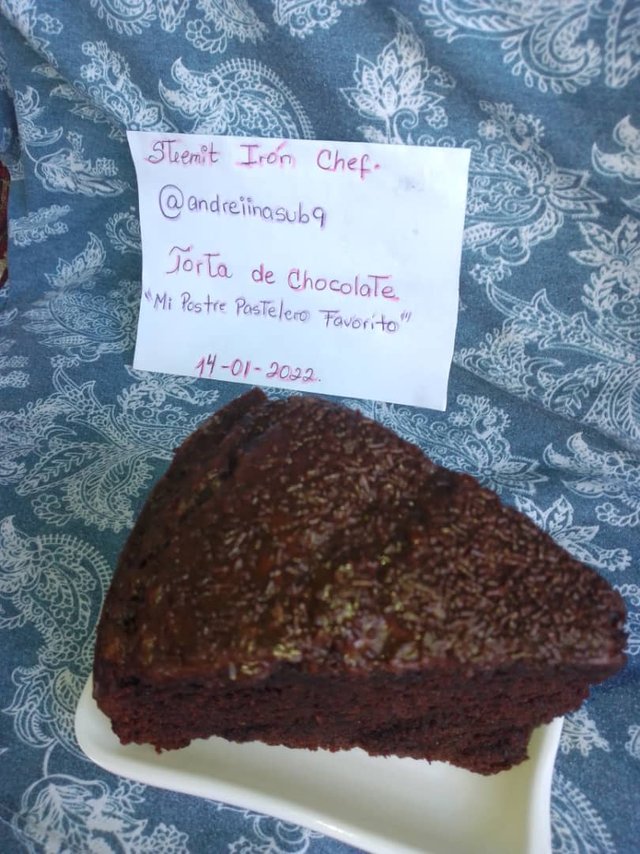 Steemit Irón Chef.
@andreiinasub9
Torta de Chocolate
"Mi Postre Pastelero Favorito"
14-01-2022.